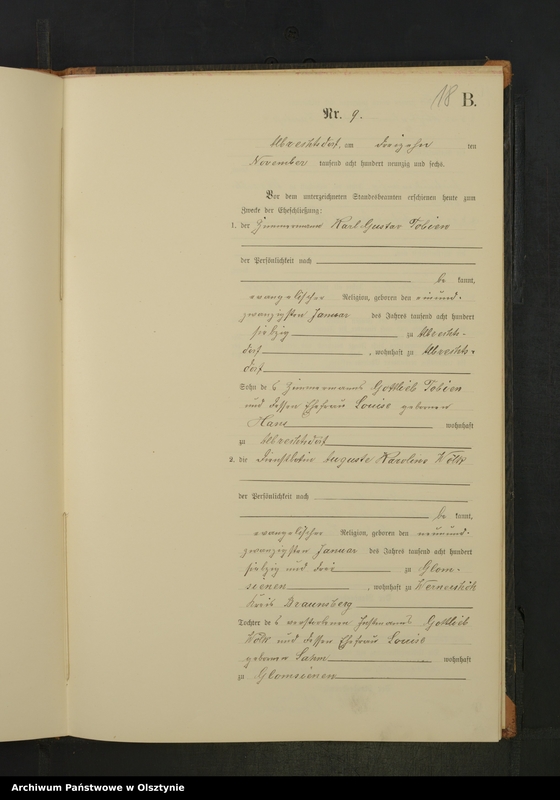 18 B.
Nr. 9.
Albrechtsdorf, am dreizehn ten
November tausend acht hundert neunzig und sechs.
Vor dem unterzeichneten Standesbeamten erschienen heute zum
Zwecke der Eheschließung:
1. der Zimmermann Karl Gustav Tobien
der Persönlichkeit nach
be kannt,
evangelischer Religion, geboren den einund-
zwanzigsten Januar des Jahres tausend acht hundert
siebzig zu Albrechts-
dorf, wohnhaft zu Albrechts-
dorf
Sohn des Zimmermanns Gottlieb Tobien
und dessen Ehefrau Louise geborenen
wohnhaft
zu Albrechtsdorf
2. die Auguste Karoline
der Persönlichkeit nach
be kannt,
evangelischer Religion, geboren den neunund-
zwanzigsten Januar des Jahres tausend acht hundert
siebzig und drei zu Glom-
sienen, wohnhaft zu
Kreis Braunsberg
Tochter des verstorbenen Gottlieb
und dessen Ehefrau Louise
geborener wohnhaft
zu Glomsienen
Archiwum Państwowe w Olsztynie